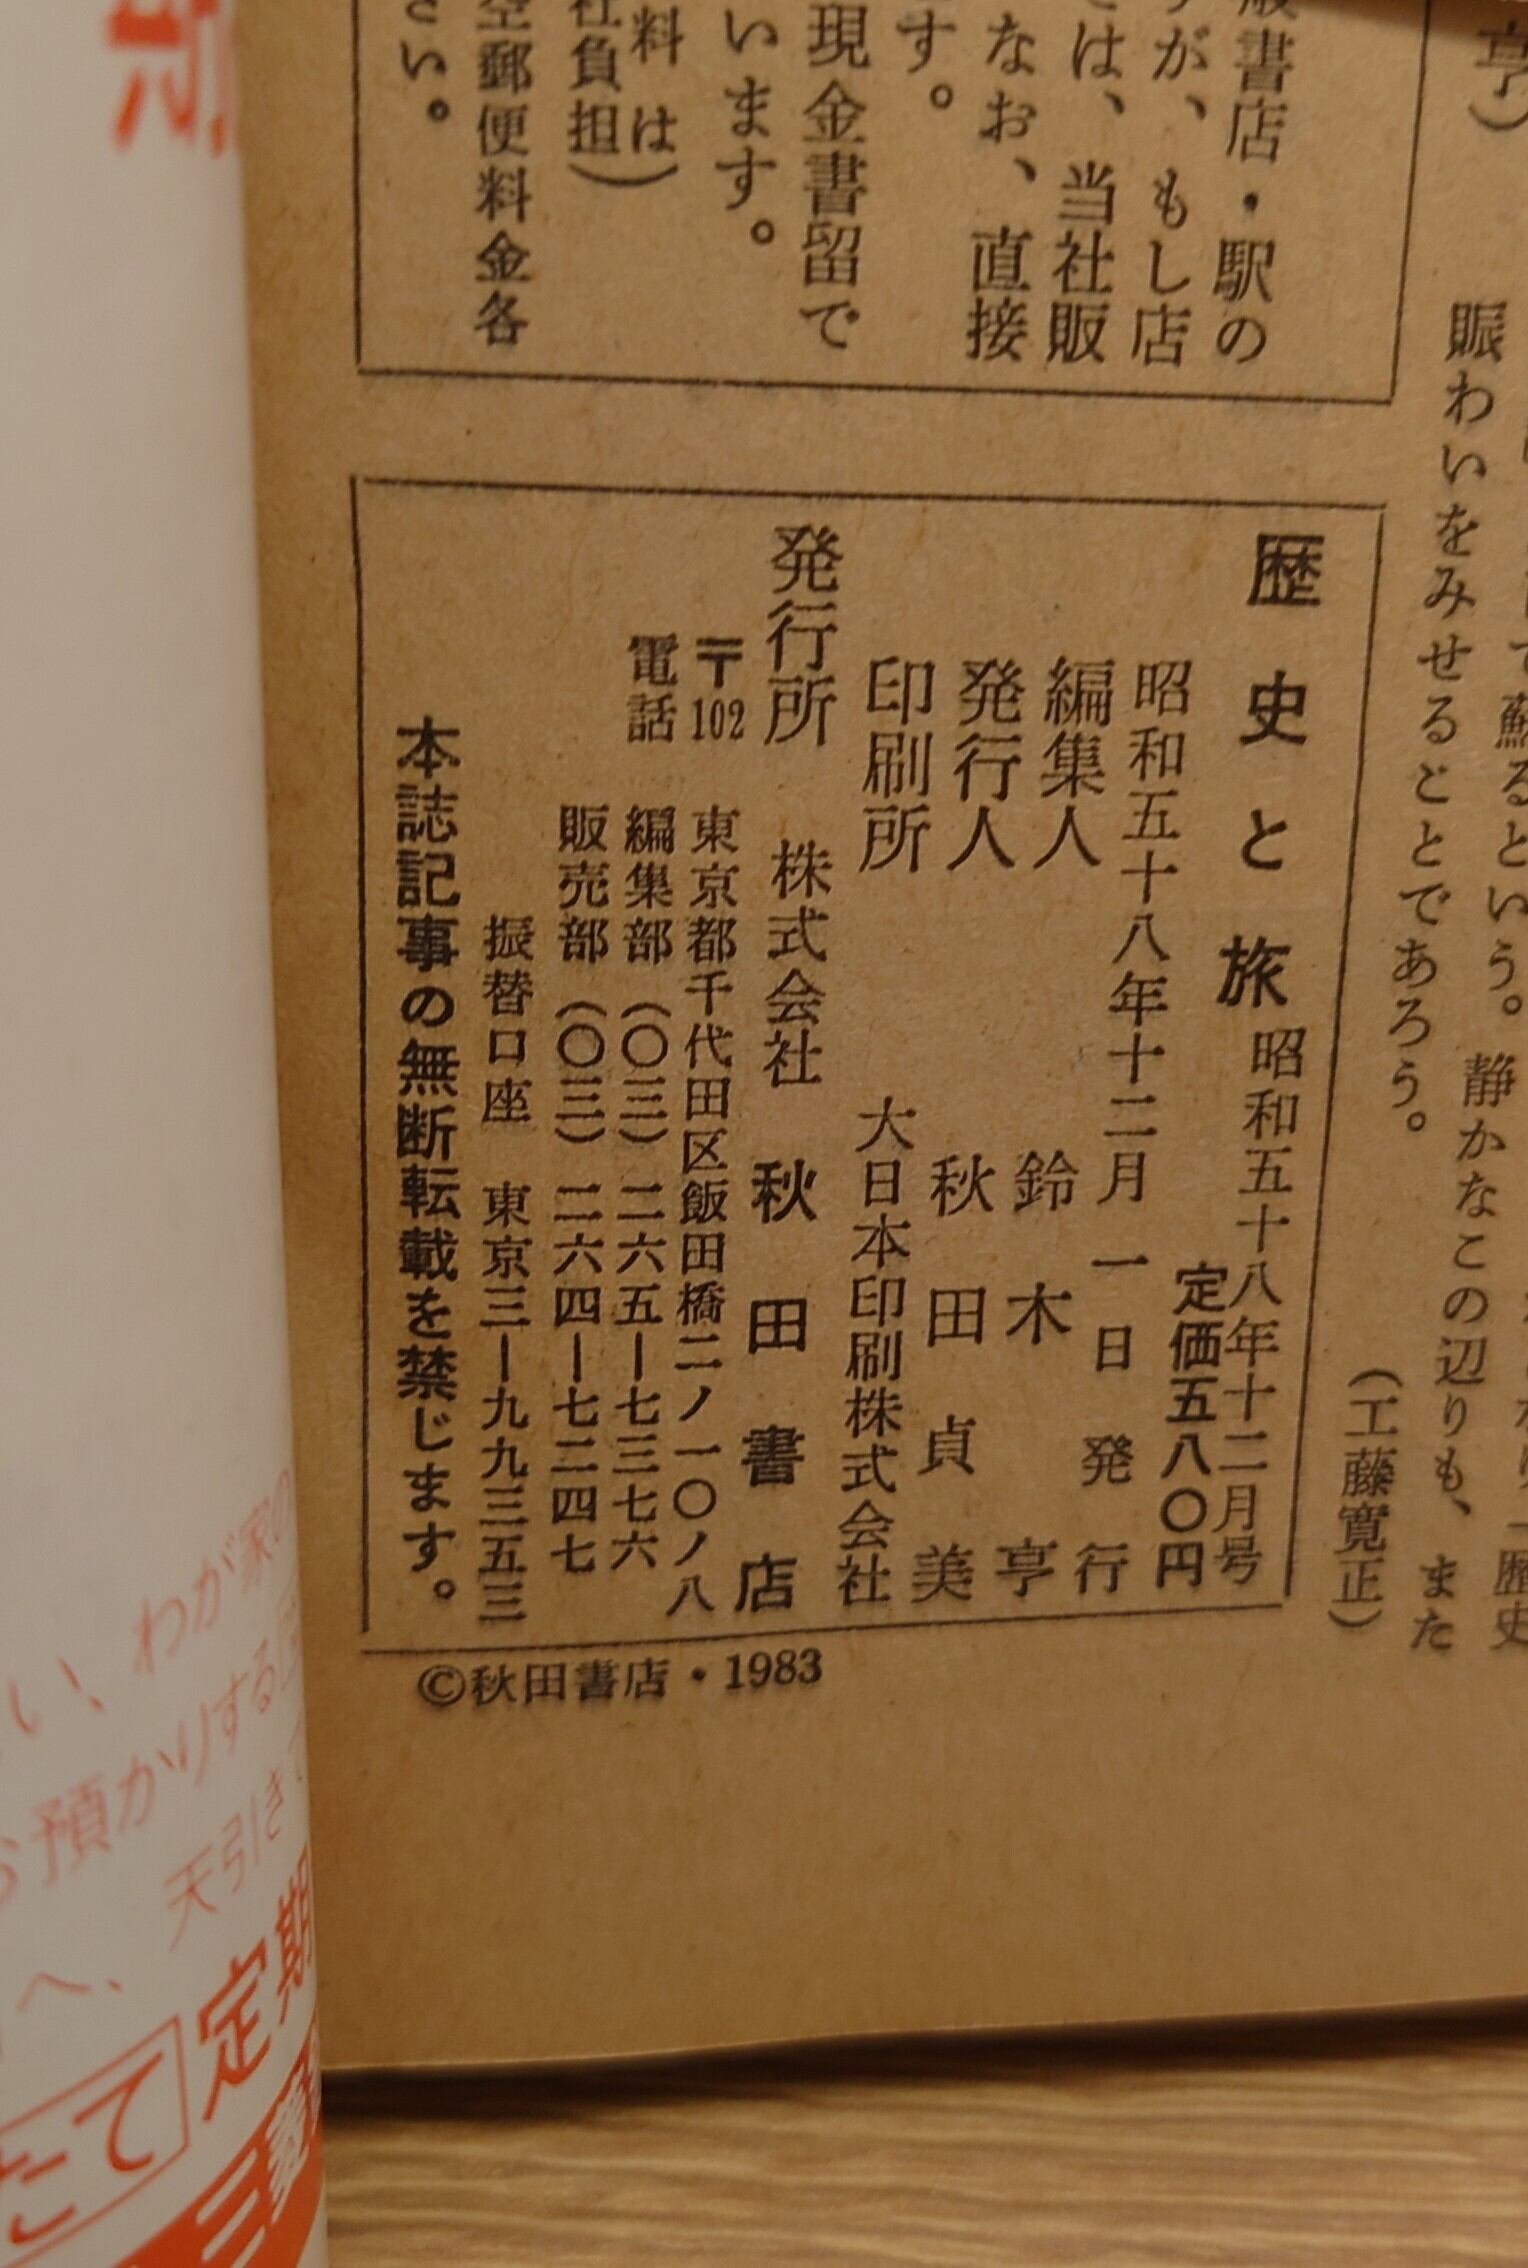 亨）
賑わいをみせることであろう。
て蘇るという。静かなこの辺りも、また
（工藤寛正）
書店・駅の
が、もし店
は、当社販
なお、直接
す。
現金書留で
います。
料は）
社負担）
空郵便料金各
さい。
歴史と旅 昭和五十八年十二月号
定価五八〇円
昭和五十八年十二月一日発行
編集人 鈴木亨
発行人 秋田貞美
印刷所 大日本印刷株式会社
発行所 株式会社 秋田書店
〒102 東京都千代田区飯田橋二ノ一〇ノ八
電話 編集部（〇三）二六五―七三七六
販売部（〇三）二六四―七二四七
振替口座 東京三―九九三五三
本誌記事の無断転載を禁じます。
©秋田書店・1983
い、わが家の
お預かりする
天引き
へ、
たて 定期